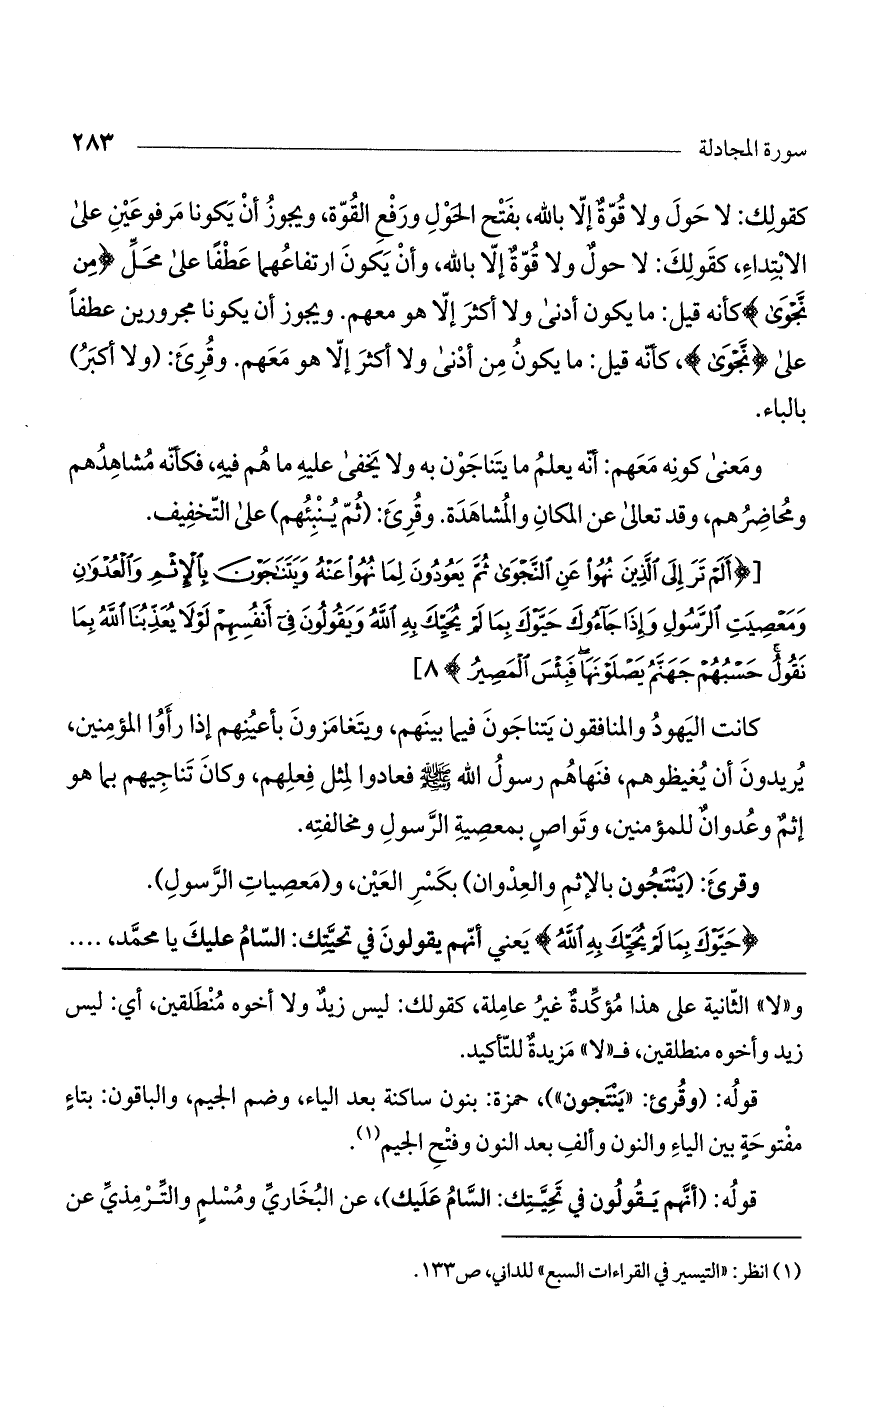 سورة المجادلة ٢٨٣
كقولِك: لا حَولَ ولا قُوّةٌ إلّا بالله، بفَتْحِ الحَوْلِ ورَفْعِ القُوّة، ويجوزُ أنْ يَكونا مَرفوعَيْنِ علىٰ
الابْتِداءِ، كقَولِكَ: لا حولٌ ولا قُوّةٌ إلّا بالله، وأنْ يَكونَ ارتفاعُهما عَطْفًا علىٰ محَلِّ ﴿مِن
نَّجْوَىٰ﴾ كأنه قيل: ما يكون أدنىٰ ولا أكثرَ إلّا هو معهم. ويجوز أن يكونا مجرورين عطفاً
علىٰ ﴿نَّجْوَىٰ﴾، كأنّه قيل: ما يكونُ مِن أدْنىٰ ولا أكثرَ إلّا هو مَعَهم. وقُرِئَ: (ولا أكبَرُ)
بالباء.
ومَعنىٰ كونِه مَعَهم: أنّه يعلمُ ما يتَناجَوْن به ولا يَخفىٰ عليهِ ما هُم فيهِ، فكأنّه مُشاهِدُهم
ومُحاضِرُهم، وقد تعالىٰ عن المكانِ والمُشاهَدَة. وقُرِئَ: (ثُمّ يُنْبِئُهم) علىٰ التّخفِيف.
[﴿أَلَمْ تَرَ إِلَى ٱلَّذِينَ نُهُوا۟ عَنِ ٱلنَّجْوَىٰ ثُمَّ يَعُودُونَ لِمَا نُهُوا۟ عَنْهُ وَيَتَنَـٰجَوْنَ بِٱلْإِثْمِ وَٱلْعُدْوَٰنِ
وَمَعْصِيَتِ ٱلرَّسُولِ وَإِذَا جَآءُوكَ حَيَّوْكَ بِمَا لَمْ يُحَيِّكَ بِهِ ٱللَّهُ وَيَقُولُونَ فِىٓ أَنفُسِهِمْ لَوْلَا يُعَذِّبُنَا ٱللَّهُ بِمَا
نَقُولُ ۚ حَسْبُهُمْ جَهَنَّمُ يَصْلَوْنَهَا ۖ فَبِئْسَ ٱلْمَصِيرُ﴾ ٨]
كانت اليَهودُ والمنافقون يَتناجَونَ فيما بينَهم، ويتَغامَزونَ بأعيُنِهم إذا رأَوُا المؤمنين،
يُريدونَ أن يُغيظوهم، فنَهاهُم رسولُ الله ﷺ فعادوا لِمثل فِعلِهم، وكانَ تَناجِيهم بما هو
إثمٌ وعُدوانٌ للمؤمنين، وتَواصٍ بمعصيةِ الرَّسولِ ومخالفتِه.
وقرئَ: (يَنْتَجُون بالإثمِ والعِدْوان) بكَسْرِ العَيْن، و(مَعصِياتِ الرّسولِ).
﴿حَيَّوْكَ بِمَا لَمْ يُحَيِّكَ بِهِ ٱللَّهُ﴾ يَعني أنّهم يقولونَ في تحيَّتِك: السّامُ عليكَ يا محمَّد، ....
و«لا» الثّانية على هذا مُؤكِّدةٌ غيرُ عامِلة، كقولك: ليس زيدٌ ولا أخوه مُنْطَلقين، أي: ليس
زيد وأخوه منطلقين، فـ«لا» مَزيدةٌ للتّأكيد.
قولُه: (وقُرئ: «يَنْتَجون»)، حمزة: بنون ساكنة بعد الياء، وضم الجيم، والباقون: بتاءٍ
مفْتوحَةٍ بين الياءِ والنون وألفٍ بعد النون وفتْحِ الجيم(١).
قولُه: (أنَّهم يَقُولُون في تَحِيَّتِك: السَّامُ عَلَيك)، عن البُخَاريِّ ومُسْلمٍ والتِّرْمِذيِّ عن
(١) انظر: «التيسير في القراءات السبع» للداني، ص١٣٣.